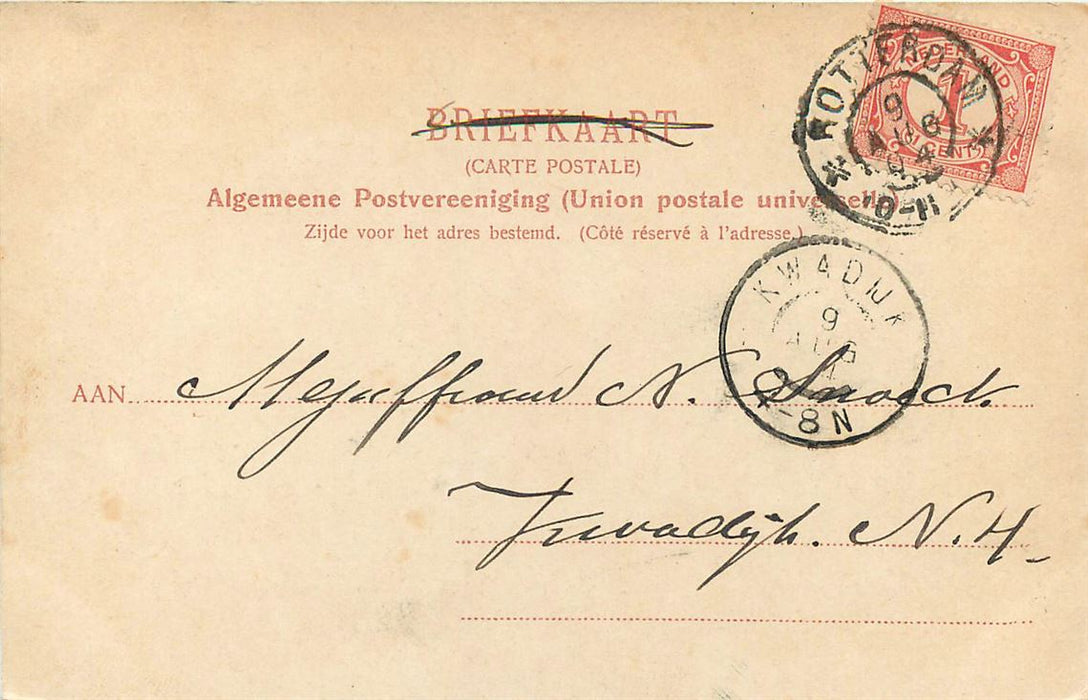 BRIEFKAART
(CARTE POSTALE)
Algemeene Postvereeniging (Union postale universelle)
Zijde voor het adres bestemd. (Côté réservé à l'adresse.)
NEDERLAND
1
CENT
ROTTERDAM
9
4
10-11
KWADIJK
9
AUG
4
-8N
AAN Mejuffrouw N. Snoeck.
Kwadijk. N.H.